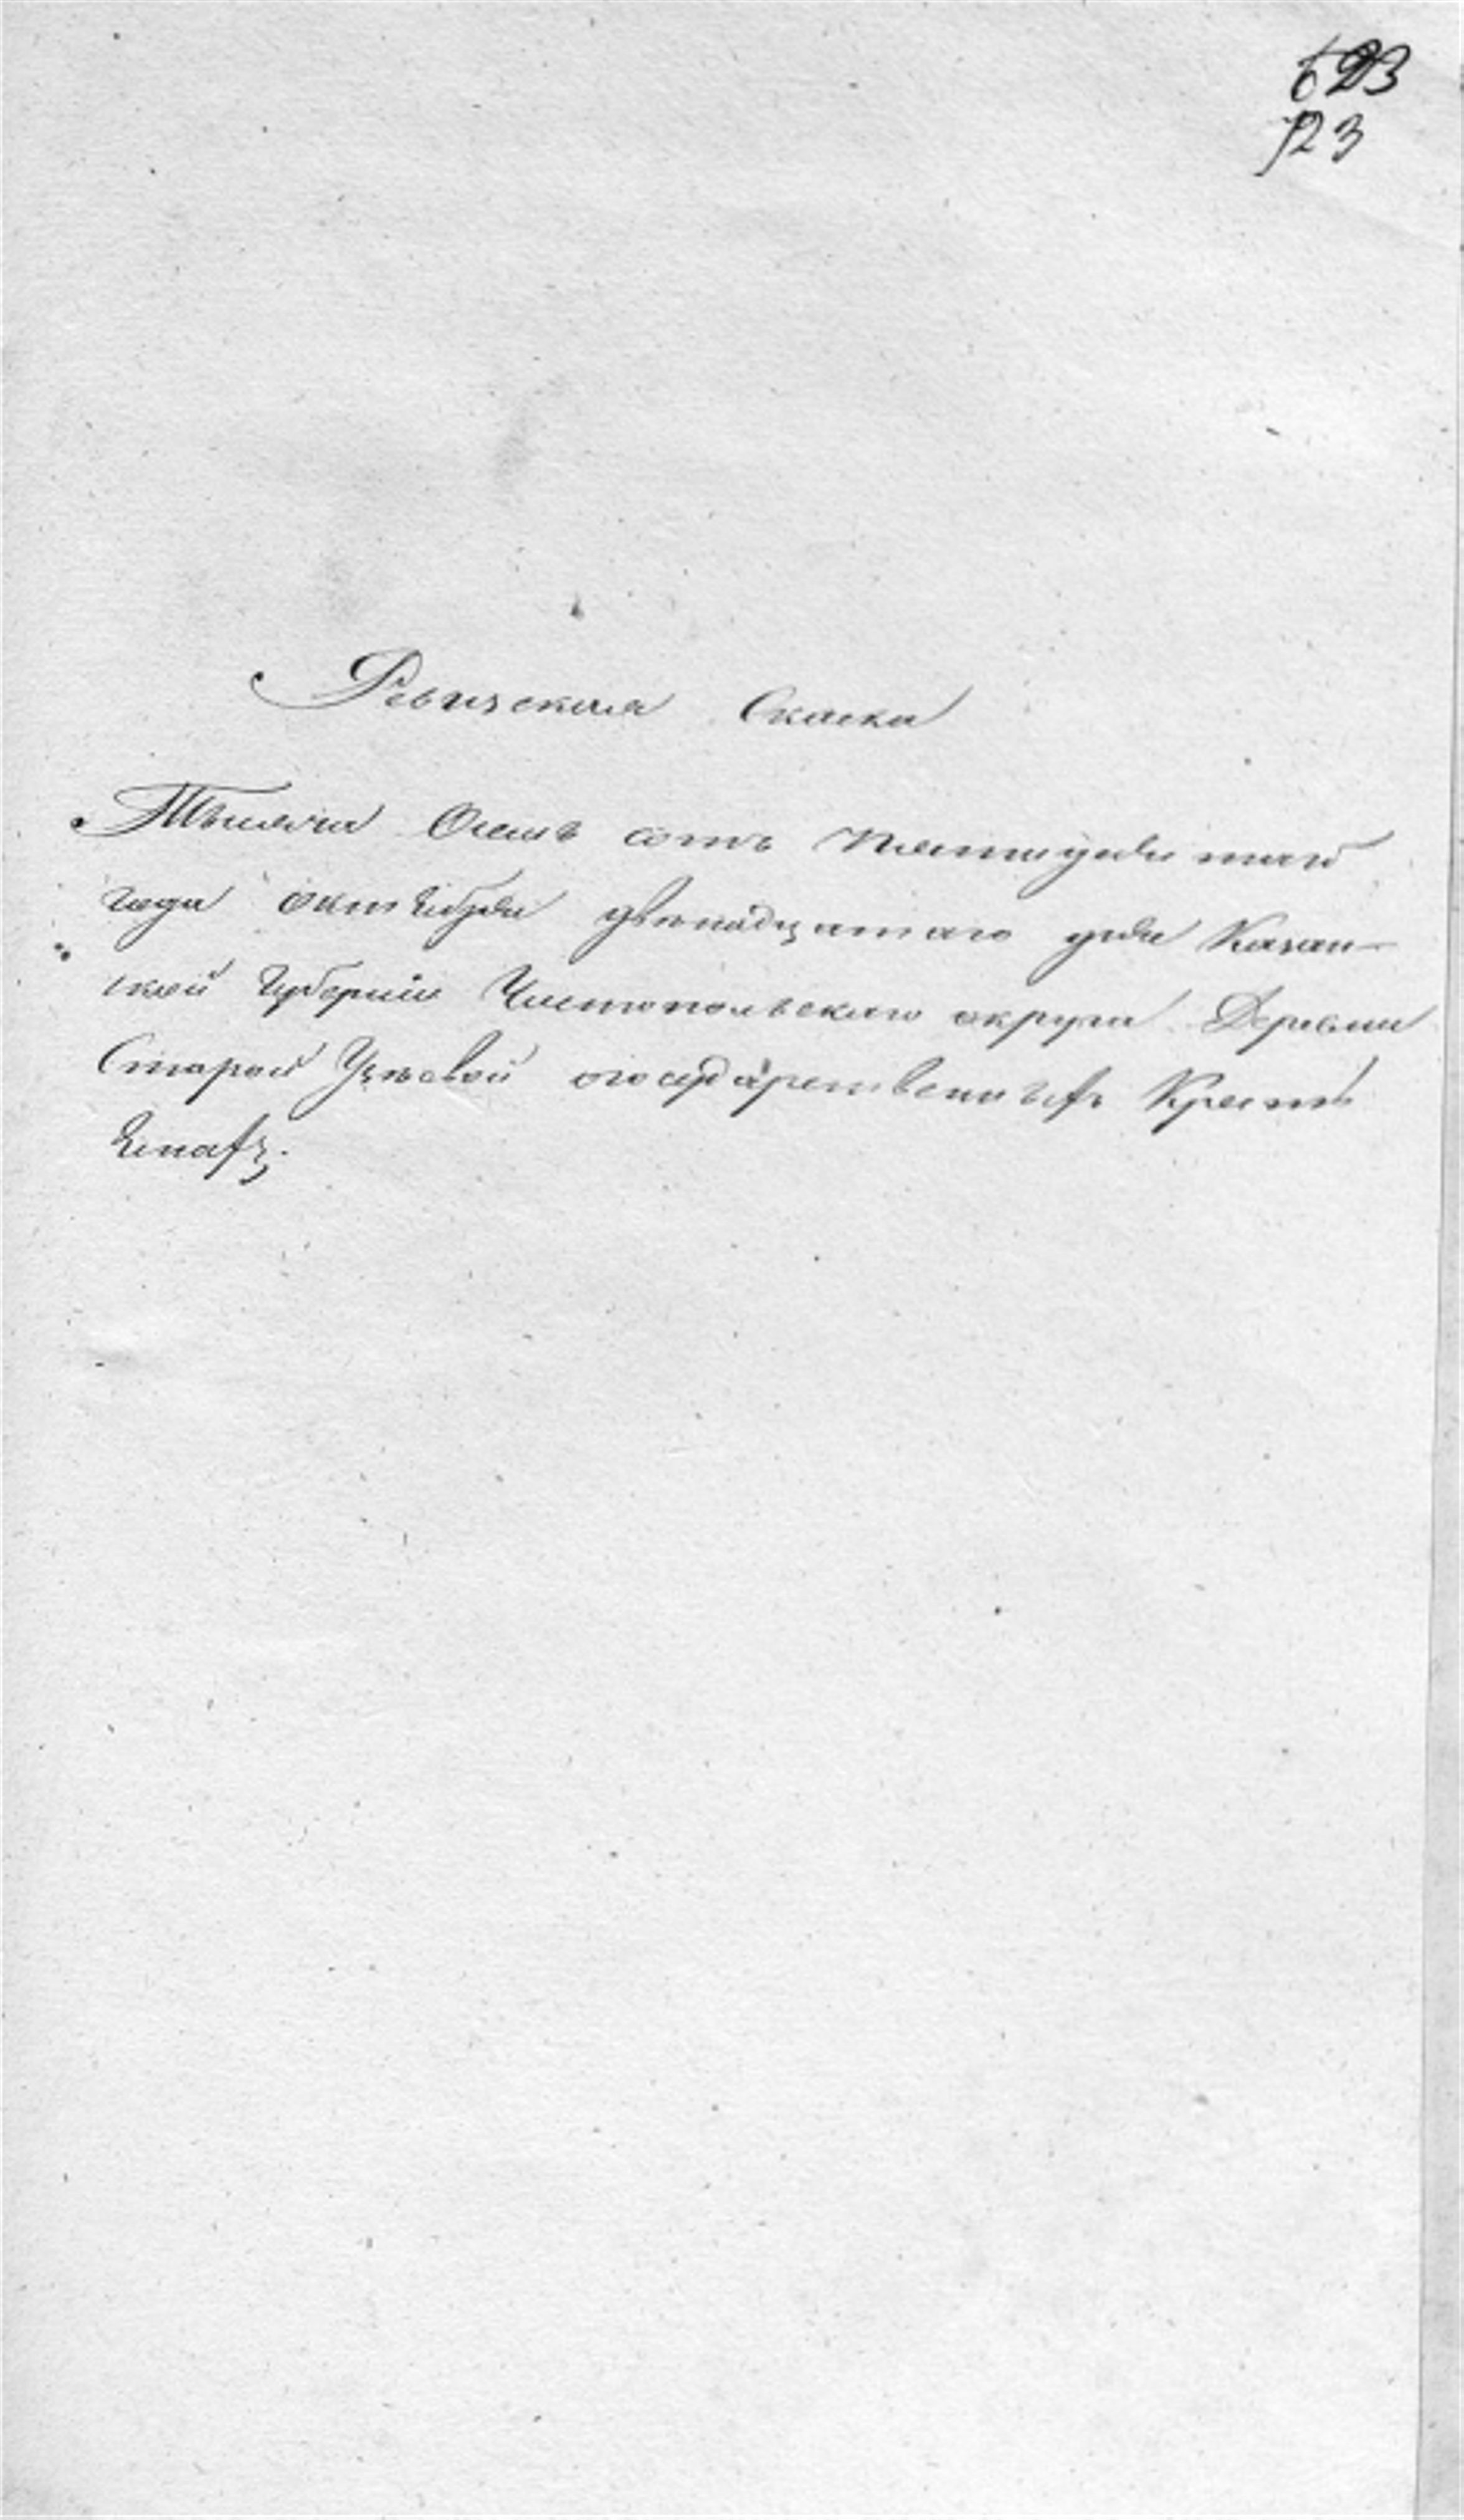 623
723
Ревизская Скаска
Тысяча Осемь сотъ пятидесятаго
года октября двенадцатаго дня Казан-
ской Губерніи Чистопольскаго округа Деревни
Старой государственныхъ Кресть
янахъ.